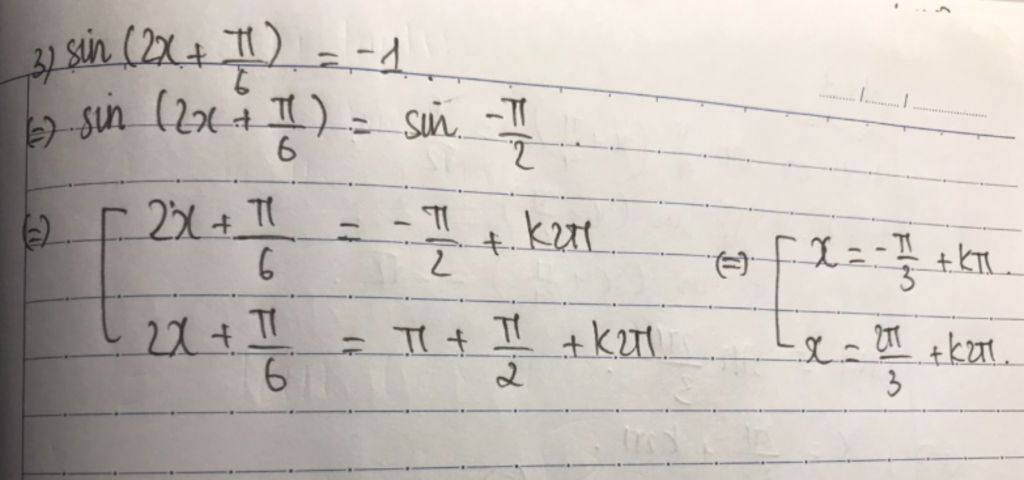 3) sin (2x + π/6) = -1.
(=) sin (2x + π/6) = sin -π/2.
(=) [ 2x + π/6 = -π/2 + k2π (=) [ x = -π/3 + kπ.
2x + π/6 = π + π/2 + k2π x = 2π/3 + k2π.